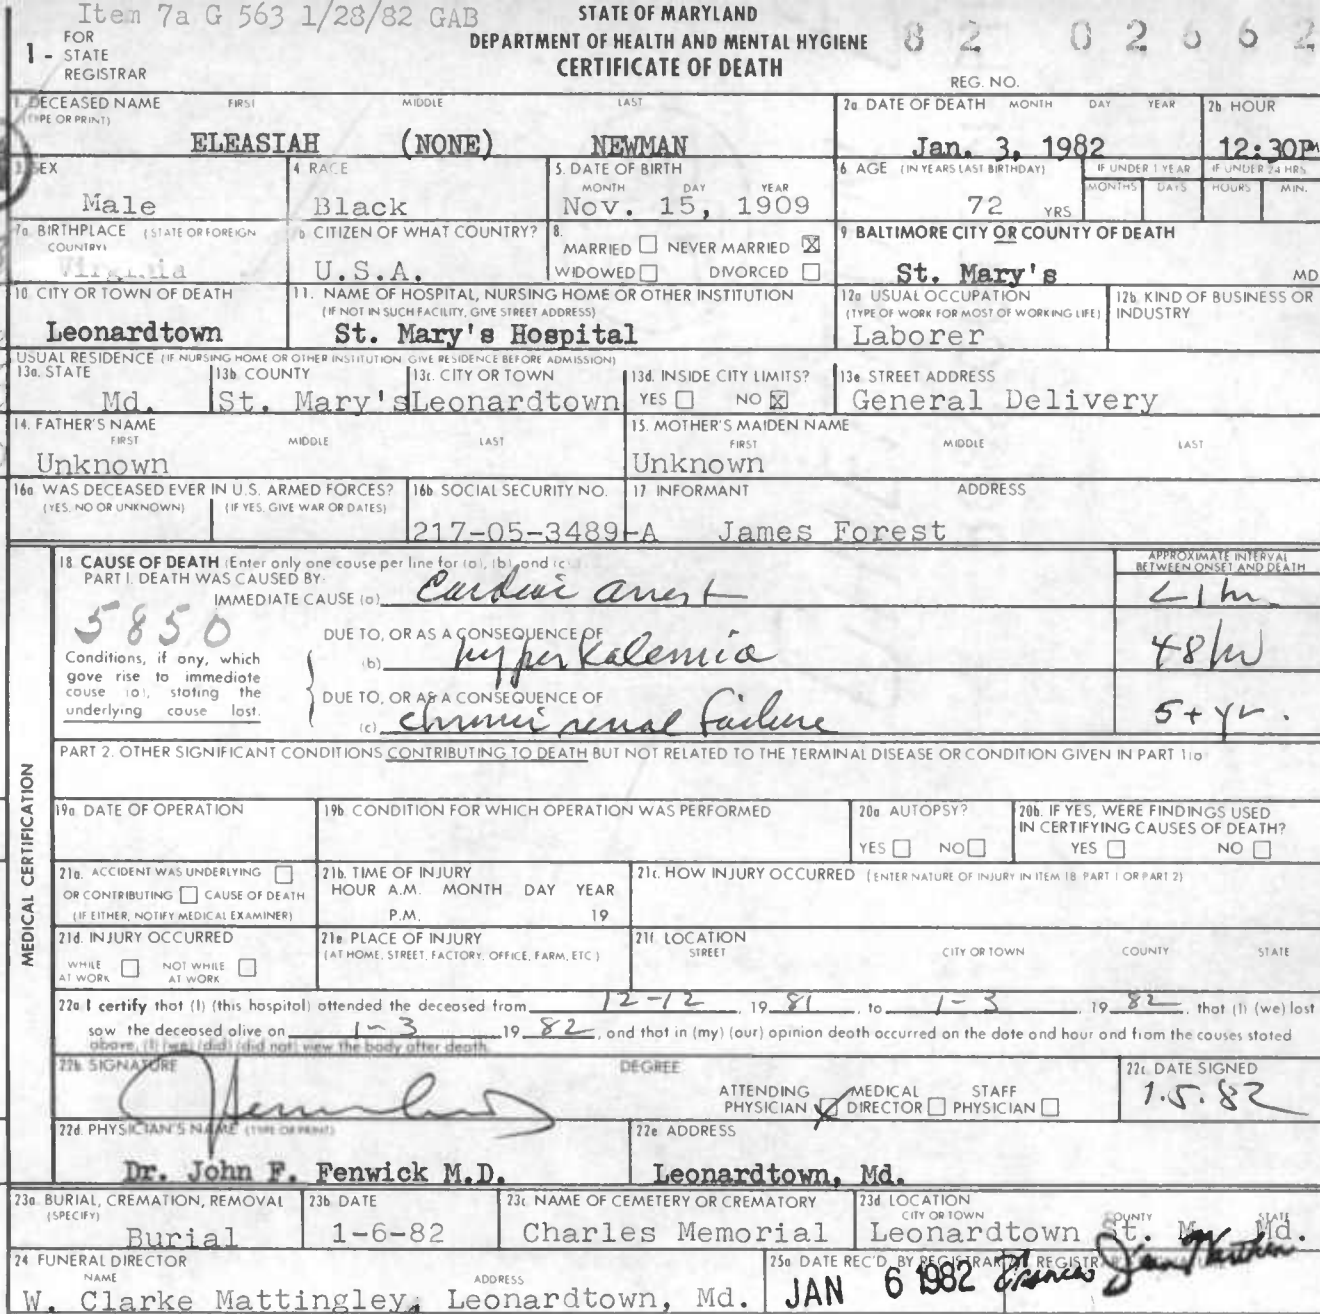 Item 7a G 563 1/28/82 GAB
STATE OF MARYLAND
DEPARTMENT OF HEALTH AND MENTAL HYGIENE
CERTIFICATE OF DEATH
1 - FOR STATE REGISTRAR
82 02662
REG. NO.
1. DECEASED NAME FIRST MIDDLE LAST
(TYPE OR PRINT)
ELEASIAH (NONE) NEWMAN
2a DATE OF DEATH MONTH DAY YEAR
Jan. 3, 1982
2b HOUR
12:30PM
3 SEX
Male
4 RACE
Black
5. DATE OF BIRTH
MONTH DAY YEAR
Nov. 15, 1909
6 AGE (IN YEARS LAST BIRTHDAY)
72 YRS
IF UNDER 1 YEAR
MONTHS DAYS
IF UNDER 24 HRS
HOURS MIN.
7a. BIRTHPLACE (STATE OR FOREIGN COUNTRY)
Virginia
b CITIZEN OF WHAT COUNTRY?
U.S.A.
8.
MARRIED ☐ NEVER MARRIED ☒
WIDOWED ☐ DIVORCED ☐
9 BALTIMORE CITY OR COUNTY OF DEATH
St. Mary's MD
10 CITY OR TOWN OF DEATH
Leonardtown
11. NAME OF HOSPITAL, NURSING HOME OR OTHER INSTITUTION
(IF NOT IN SUCH FACILITY, GIVE STREET ADDRESS)
St. Mary's Hospital
12a USUAL OCCUPATION
(TYPE OF WORK FOR MOST OF WORKING LIFE)
Laborer
12b KIND OF BUSINESS OR INDUSTRY
USUAL RESIDENCE (IF NURSING HOME OR OTHER INSTITUTION GIVE RESIDENCE BEFORE ADMISSION)
13a. STATE
Md.
13b COUNTY
St. Mary's
13c. CITY OR TOWN
Leonardtown
13d. INSIDE CITY LIMITS?
YES ☐ NO ☒
13e STREET ADDRESS
General Delivery
14. FATHER'S NAME
FIRST MIDDLE LAST
Unknown
15. MOTHER'S MAIDEN NAME
FIRST MIDDLE LAST
Unknown
16a WAS DECEASED EVER IN U.S. ARMED FORCES?
(YES, NO OR UNKNOWN) (IF YES, GIVE WAR OR DATES)
16b SOCIAL SECURITY NO.
217-05-3489-A
17 INFORMANT ADDRESS
James Forest
MEDICAL CERTIFICATION
18 CAUSE OF DEATH (Enter only one cause per line for (a), (b), and (c).)
PART I. DEATH WAS CAUSED BY:
APPROXIMATE INTERVAL BETWEEN ONSET AND DEATH
IMMEDIATE CAUSE (a) Cardiac arrest <1 hr.
5850
Conditions, if any, which gave rise to immediate cause (a), stating the underlying cause last.
DUE TO, OR AS A CONSEQUENCE OF
(b) hyperkalemia 48 hr
DUE TO, OR AS A CONSEQUENCE OF
(c) chronic renal failure 5+ yr.
PART 2. OTHER SIGNIFICANT CONDITIONS CONTRIBUTING TO DEATH BUT NOT RELATED TO THE TERMINAL DISEASE OR CONDITION GIVEN IN PART 1(a)
19a DATE OF OPERATION
19b CONDITION FOR WHICH OPERATION WAS PERFORMED
20a AUTOPSY?
YES ☐ NO ☐
20b. IF YES, WERE FINDINGS USED IN CERTIFYING CAUSES OF DEATH?
YES ☐ NO ☐
21a. ACCIDENT WAS UNDERLYING ☐
OR CONTRIBUTING ☐ CAUSE OF DEATH
(IF EITHER, NOTIFY MEDICAL EXAMINER)
21b. TIME OF INJURY
HOUR A.M. MONTH DAY YEAR
P.M. 19
21c. HOW INJURY OCCURRED (ENTER NATURE OF INJURY IN ITEM 18 PART 1 OR PART 2)
21d. INJURY OCCURRED
WHILE AT WORK ☐ NOT WHILE AT WORK ☐
21e PLACE OF INJURY
(AT HOME, STREET, FACTORY, OFFICE, FARM, ETC.)
21f LOCATION
STREET CITY OR TOWN COUNTY STATE
22a I certify that (I) (this hospital) attended the deceased from 12-12, 19 81, to 1-3, 19 82, that (I) (we) last
saw the deceased alive on 1-3 19 82, and that in (my) (our) opinion death occurred on the date and hour and from the causes stated
above, (I) (we) (did) (did not) view the body after death.
22b. SIGNATURE DEGREE
ATTENDING PHYSICIAN ☒ MEDICAL DIRECTOR ☐ STAFF PHYSICIAN ☐
22c DATE SIGNED
1.5.82
22d. PHYSICIAN'S NAME (TYPE OR PRINT)
Dr. John F. Fenwick M.D.
22e ADDRESS
Leonardtown, Md.
23a BURIAL, CREMATION, REMOVAL (SPECIFY)
Burial
23b DATE
1-6-82
23c NAME OF CEMETERY OR CREMATORY
Charles Memorial
23d LOCATION
CITY OR TOWN COUNTY STATE
Leonardtown St. M. Md.
24 FUNERAL DIRECTOR
NAME ADDRESS
W. Clarke Mattingley, Leonardtown, Md.
25a DATE REC'D. BY REGISTRAR
JAN 6 1982
REGISTRAR
Frances Jean